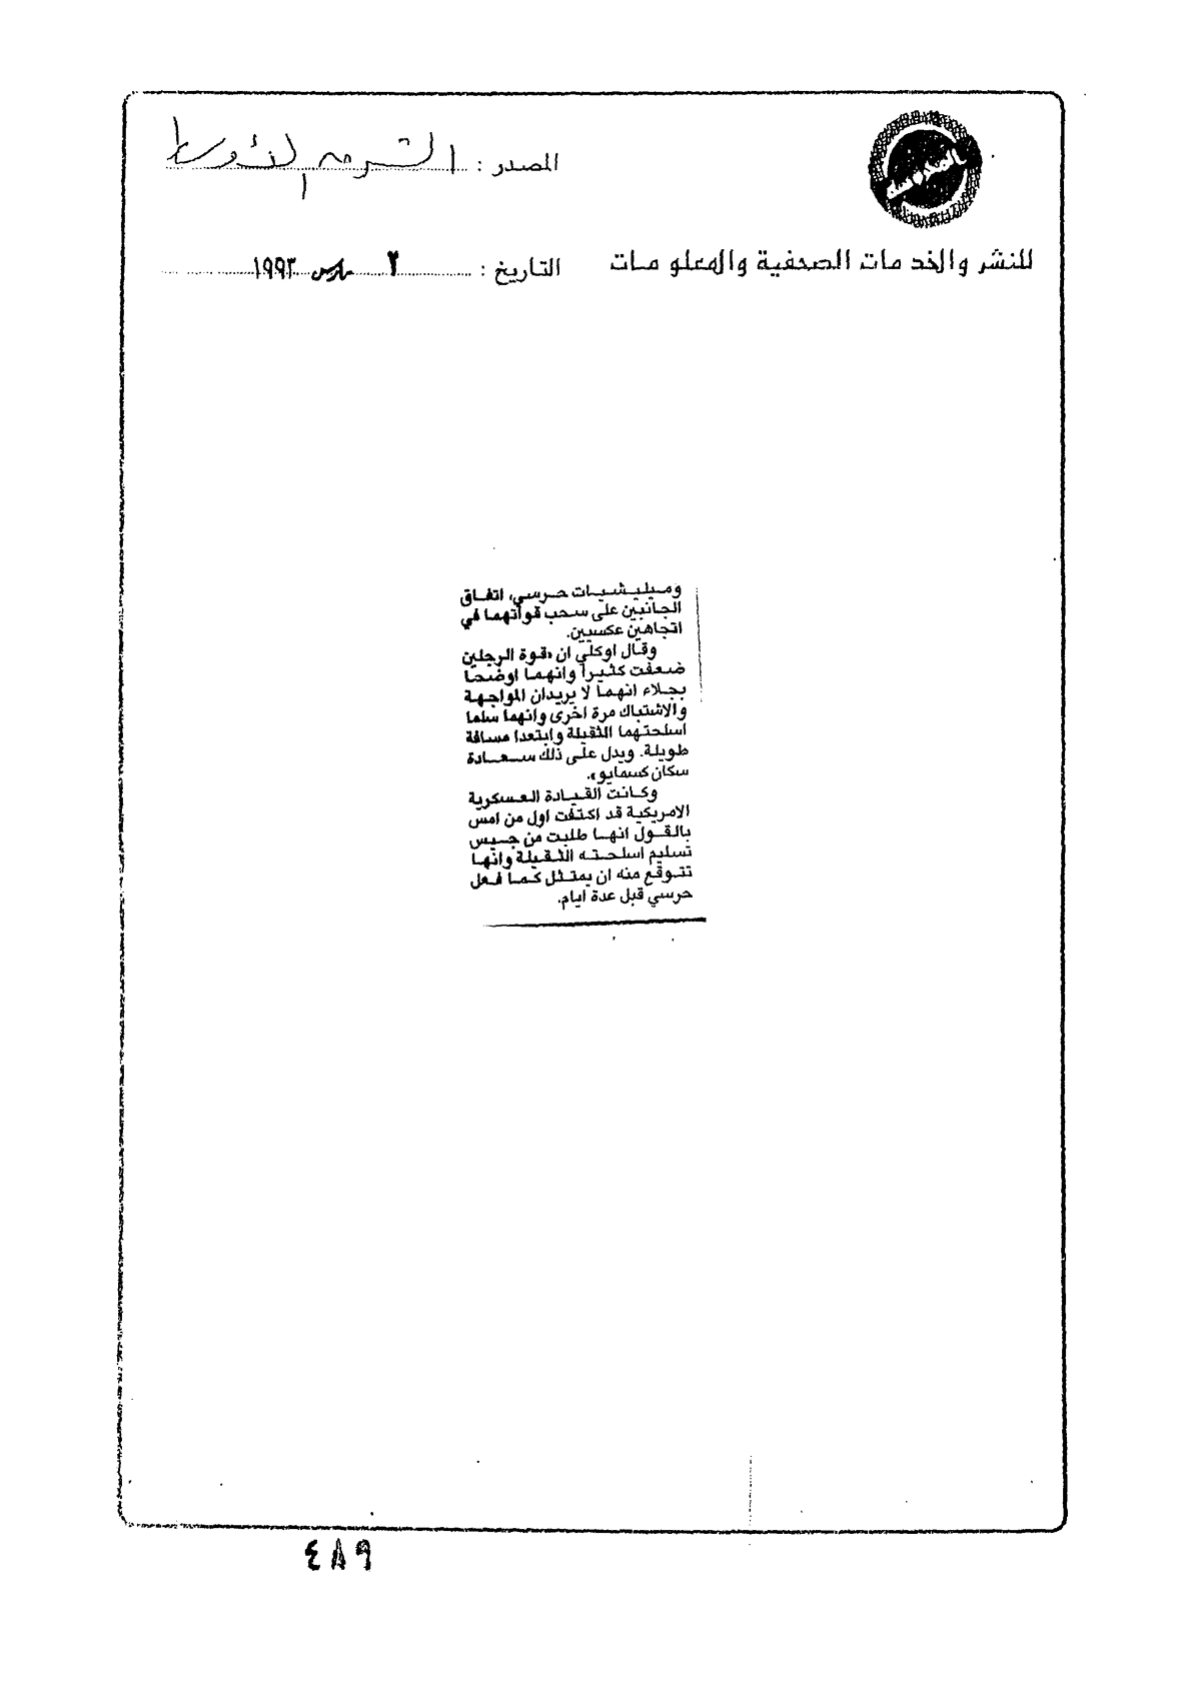 المصدر : الشرق الأوسط
للنشر والخدمات الصحفية والمعلومات
التاريخ : ٢ مارس ١٩٩٣
وميليشيات حرسي، اتفاق
الجانبين على سحب قواتهما في
اتجاهين عكسيين.
وقال اوكلي ان «قوة الرجلين
ضعفت كثيرا وانهما اوضحا
بجلاء انهما لا يريدان المواجهة
والاشتباك مرة اخرى وانهما سلما
اسلحتهما الثقيلة وابتعدا مسافة
طويلة. ويدل على ذلك سعادة
سكان كسمايو».
وكانت القيادة العسكرية
الامريكية قد اكتفت اول من امس
بالقول انها طلبت من جيس
تسليم اسلحته الثقيلة وانها
تتوقع منه ان يمتثل كما فعل
حرسي قبل عدة ايام.
٤٨٩